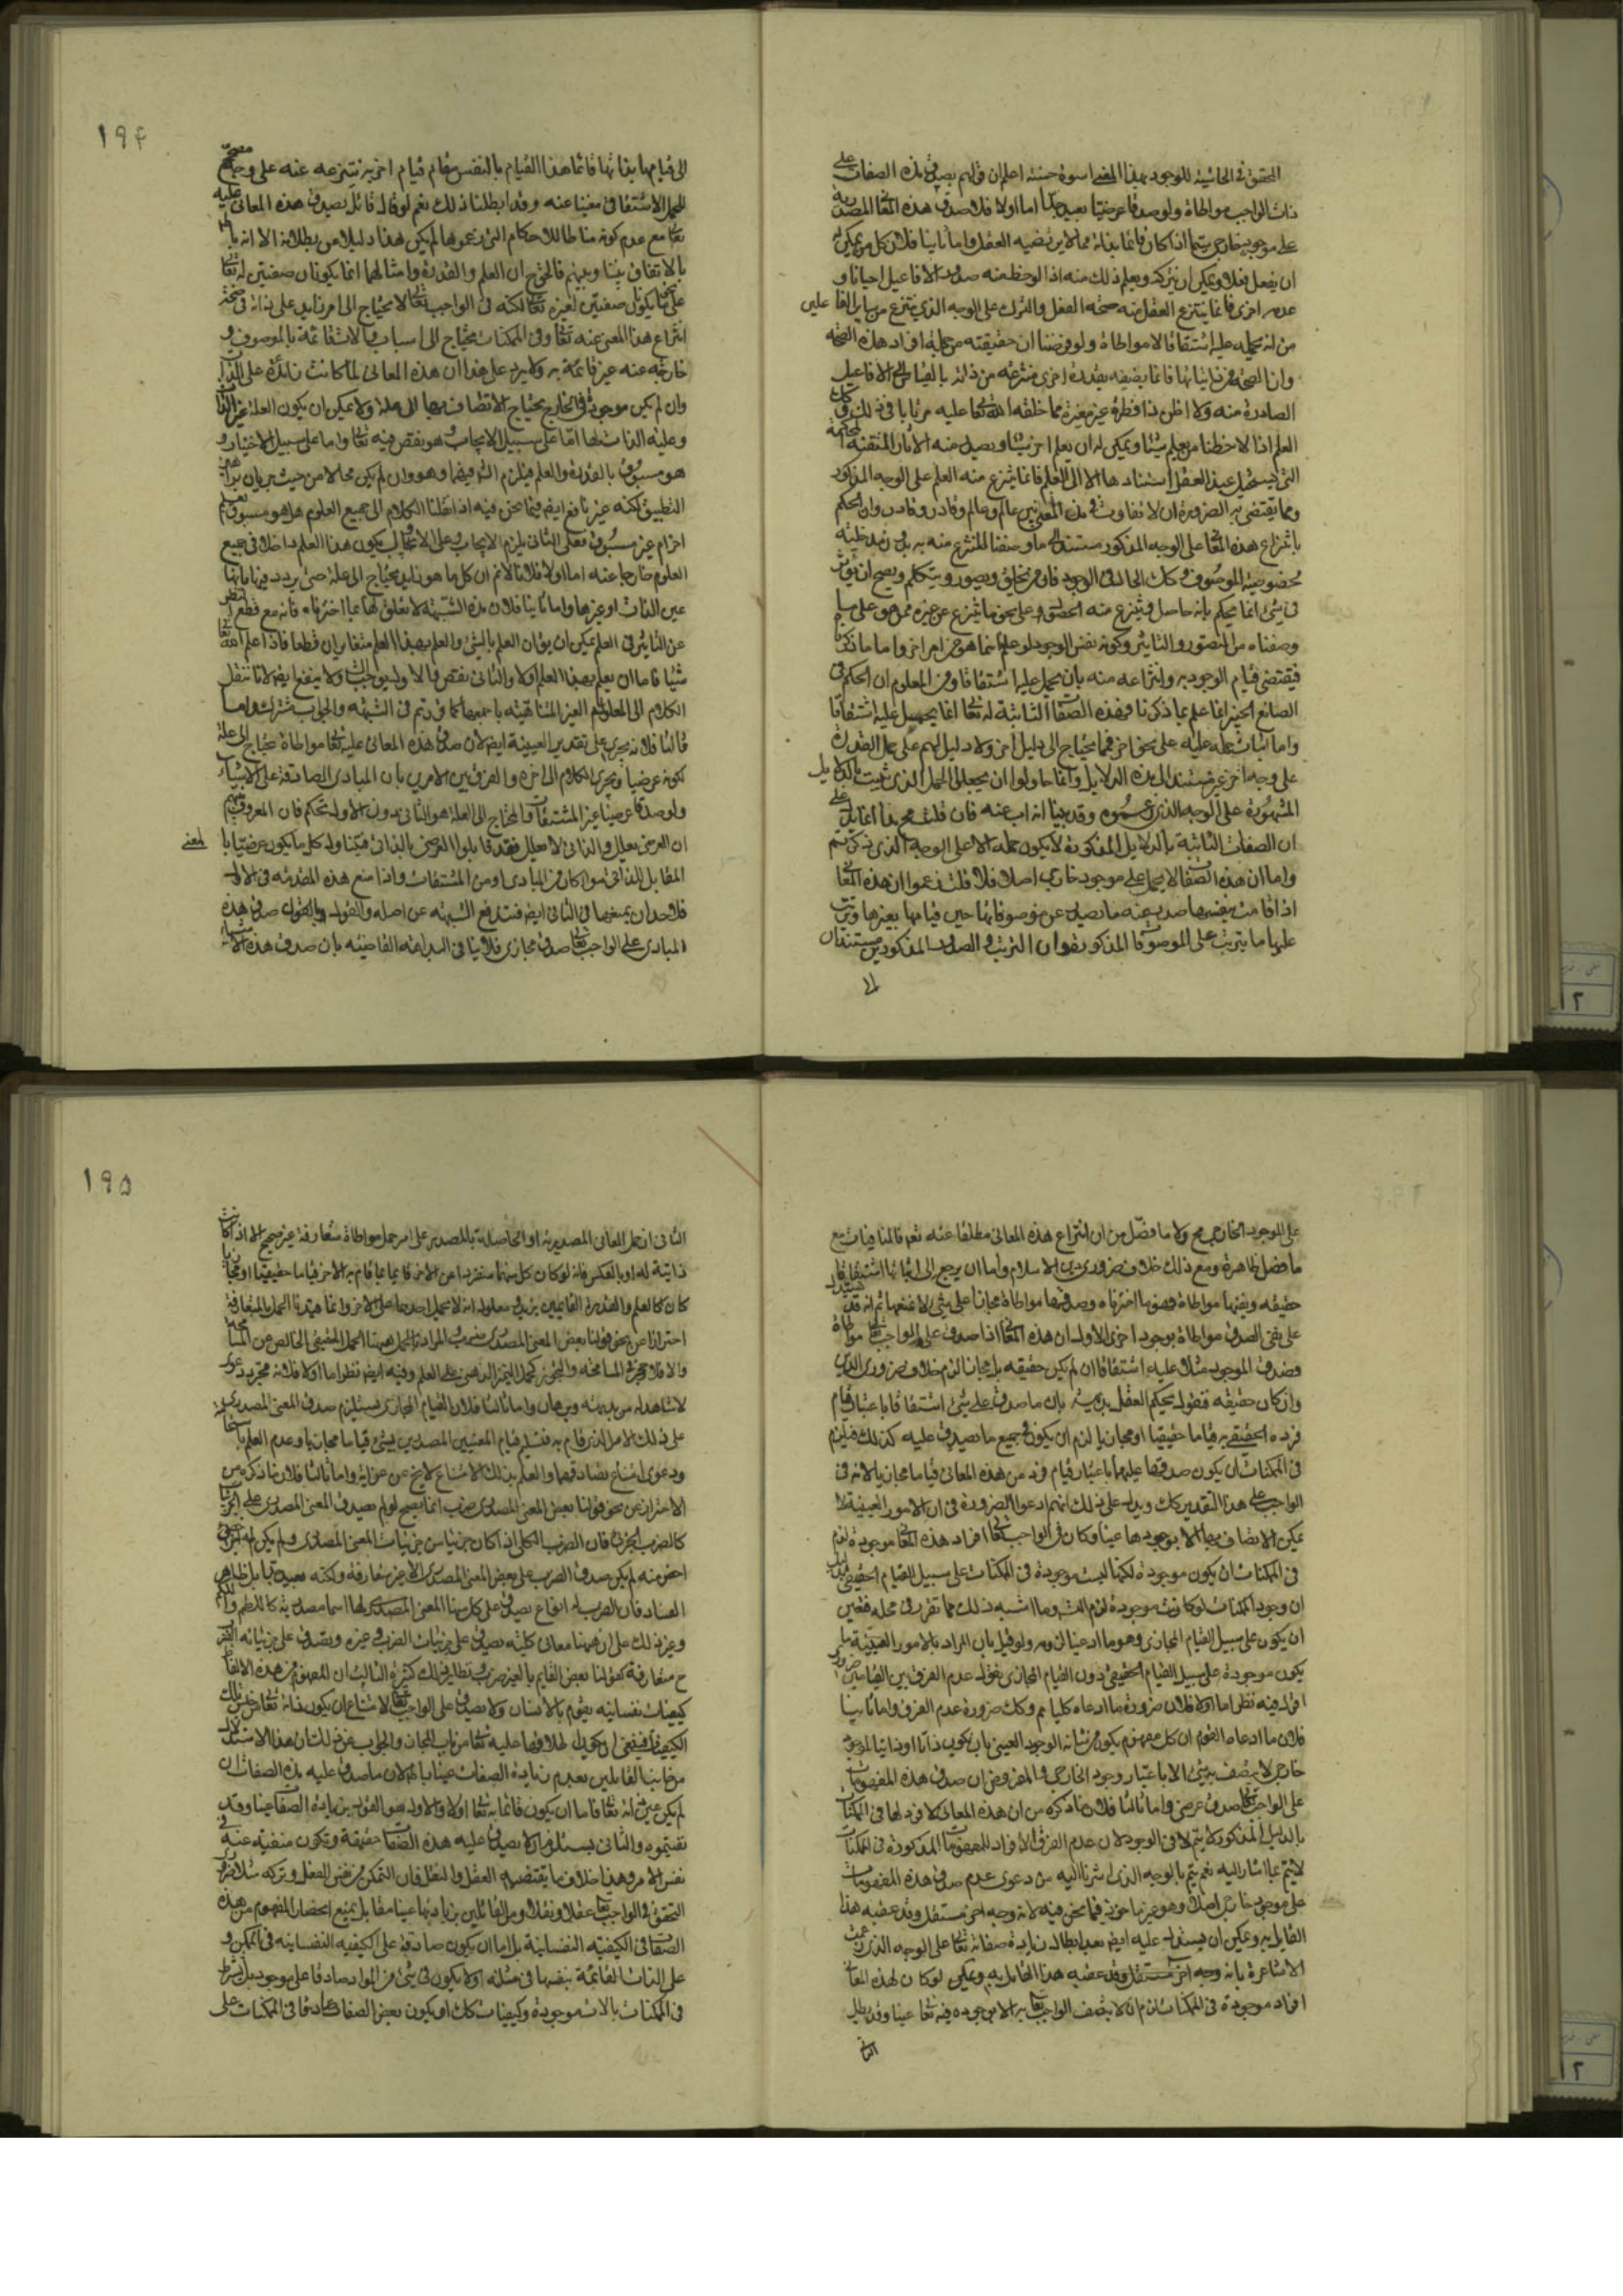 المحقق فى الحاشية للوجود بهذا المعنى اسوة حسنة اعلم ان قولهم يصدق هذه الصفات على
ذات الواجب مواطاة ولو صدقا عرضيا بعيد جدا اما اولا فلان صدق هذه المعانى المصدرية
على موجود خارجى سيما اذا كان قائما بذاته مما لا يرتضيه العقل واما ثانيا فلان كل من يمكن له
ان يفعل فعلا ويمكن ان يتركه ويعلم ذلك منه اذا لوحظ منه صدور الافاعيل احيانا و
عدمه اخرى فانما ينتزع العقل منه صحة الفعل والترك على الوجه الذى ينتزع من ساير الفاعلين
من انه يحمله عليه اشتقاقا لا مواطاة ولو فرضنا ان حقيقته من جملة افراد هذه الصحة
الصادرة منه ولا اظن ذا فطرة غير مغيرة مما خلقه الله تعالى عليه مرتابا فى ذلك وكذلك
العلم اذا لاحظنا من يعلم شيئا ويمكن له ان يعلم اخر شيئا ويصل منه الآثار المتقنة المحكمة
التى يستحيل عند العقل استنادها الا الى العلم فانما ينتزع منه العلم على الوجه المذكور
ومما يقتضى به الضرورة ان لا تفاوت فى هذا المعنى بين عالم وعالم وقادر وقادر وان الحكم
بانتزاع هذه المعانى على الوجه المذكور مستند الى ما وصفنا المنتزع منه به بل
لخصوصية الموصوف وكذلك الحال فى الوجود فان من يخلق ويصور ويتكلم ويصح ان يؤثر
فى شىء انما يحكم بانه حاصل وينتزع منه الحصول على نحو ما ينتزع عن غيره ممن هو على ما
وصفناه من التصور والتاثير وكونه نفس الوجود لو علم انما هو من امر اخر واما ما ذكرنا
فيقتضى قيام الوجود به وانتزاعه منه بان يحمل عليه اشتقاقا ومن المعلوم ان الحكم فى
الصانع الخبير انما علم بما ذكرنا فهذه الصفات الثابتة له تعالى انما يحمل عليه اشتقاقا
واما اثبات حمله عليه على نحو اخر فمما يحتاج الى دليل اخر ولا دليل لهم على حمل القدرة
على وجه اخر غير مستند الى هذه الدلايل وانما حاولوا ان يجعلوا الحمل الذى ثبت بالدلايل
المشهورة على الوجه الذى رسموه وقد بينا انه اب عنه فان قلت
ان الصفات الثابتة بالدلايل المذكورة لا يكون حمله الا على الوجه الذى ذكرتم
واما ان هذه الصفات لا يحمل على موجود خارجى اصلا فلا قلت زعموا ان هذه المعانى
اذا قامت بنفسها صدر عنه ما يصدر عن موصوفاتها حين قيامها بغيرها وترتب
عليها ما يترتب على الموصوفات المذكورة فقول ان الترتب والصدور المذكورين مستندان
الى
١٩٤
الى قيامها بذاتها قائما هذا القيام بالنفس مقام قيام اخر به ننتزعه عنه على وجه مصحح
للحمل الاشتقاقى مغنيا عنه وقد ابطلنا ذلك نعم لو قال قائل يصدق هذه المعانى عليه
تعالى مع عدم كونه مناطا للاحكام التى زعموها لم يكن هذا دليلا من بطلانه الا انه
بالاتفاق بيننا وبينهم فالحق ان العلم والقدرة وامثالهما انما يكونان صفتين له تعالى
على ما يكونان صفتين لغيره تعالى لكنه فى الواجب تعالى لا يحتاج الى امر زايد على ذاته فى صحة
انتزاع هذا المعنى عنه تعالى وفى الممكنات يحتاج الى اسباب
خارجة عنه غير قائمة به ولا يرد على هذا ان هذه المعانى لما كانت زائدة على الذات
وان لم يكن موجودة فى الخارج يحتاج الاتصاف بها الى علة ولا يمكن ان يكون العلة غير الذات
وعلية الذات لها اما على سبيل الايجاب وهو نقص فيه تعالى واما على سبيل الاختيار و
هو مسبوق بالقدرة والعلم فيلزم التس فيهما وهو وان لم يكن محالا من حيث جريان براهين
التطبيق لكنه غير نافع ايضا فيما نحن فيه اذا نقلنا الكلام الى جميع العلوم هل هو مسبوق بعلم
اخر ام غير مسبوق فعلى الثانى يلزم الايجاب وعلى الاول يكون هذا العلم داخلا فى جميع
العلوم خارجا عنه اما اولا فلانا لا نم ان كل ما هو زايد يحتاج الى علة حتى يردد فيها بانها
عين الذات او غيرها واما ثانيا فلان هذه الشبهة لا تعلق لها بما اخترناه فانه مع قطع النظر
شيئا فاما ان يعلم بهذا العلم اولا والثانى نقص فالاولى يوجب التس ولا ينفع ايضا لانا ننقل
الكلام الى المعلوم الغير المتناهية باجمعها كما قررتم فى الشبهة والجواب مشترك واما
ثالثا فلانه يجرى على تقدير العينية ايضا لان صدق هذه المعانى عليه تعالى مواطاة يحتاج الى علة
لكونه عرضيا ويجرى الكلام الى اخره والفرق بين الامرين بان المبادى الصادقة على الاشياء
ولو صدقا عرضيا غير المشتقات والمحتاج الى العلة هو الثانى دون الاول تحكم فان المعروف بينهم
ان العرضى يعلل والذاتى لا يعلل فقد قابلوا العرضى بالذاتى فيتناول كل ما يكون عرضيا بالمعنى
المقابل للذاتى سواء كان من المبادى او من المشتقات واذا منع هذه المقدمة فى الاول
فلاحد ان يمنعها فى الثانى ايضا فتندفع الشبهة عن اصله والقول بان صدق هذه
المبادى على الواجب تعالى صدق مجازى فلا ينافى البداهة القاضية بان صدق هذه الاشياء
على الموجود الخارجى مح ولا ما فصل من ان انتزاع هذه المعانى مطلقا عنه تعم فالمنافيات مع
ما فصل ظاهرة ومع ذلك خلاف ضرورى دين الاسلام واما ان يرجع الى اثباتها اشتقاقا
حقيقة ونفيها مواطاة فهو ما اخترناه وصدقها مواطاة مجازا على شىء لا نمنعها ثم انه قد يستدل
على نفى الصدق مواطاة بوجوه اخرى الاول ان هذه المعانى اذا صدق على الواجب تعالى مواطاة
فصدق الموجود مثلا عليه اشتقاقا ان لم يكن حقيقة بل مجازا لزم خلاف ضرورى الدين
وان كان حقيقة فنقول يحكم العقل بديهية بان ما صدق على شىء اشتقاقا باعتبار قيام
فرده الحقيقى به قياما حقيقيا او مجازيا لزم ان يكون فى جميع ما يصدق عليه كذلك فيلزم
فى الممكنات ان يكون صدقها عليها باعتبار قيام فرد من هذه المعانى قياما مجازيا لانه فى
الواجب على هذا التقدير كذلك ويدل على ذلك انهم ادعوا الضرورة فى ان الامور العينية لا
يمكن الاتصاف بها الا بوجودها عينا وكان فى الواجب تعالى افراد هذه المعانى موجودة لزم
فى الممكنات ان يكون موجودة لكنها ليست موجودة فى الممكنات على سبيل القيام الحقيقى
ان وجود الممكنات لو كانت موجودة لزم التس وما اشبه ذلك مما تقرر فى محله فتعين
ان يكون على سبيل القيام المجازى وهو ما ادعينا لزومه ولو قيل بان المراد بالامور العينية ما
يكون موجودة على سبيل القيام الحقيقى دون القيام المجازى نقول عدم الفرق بين القيامين ضرورى
اقول فيه نظر اما اولا فلان ضرورة ما ادعاه كليا مم وكذلك ضرورة عدم الفرق واما ثانيا
فلان ما ادعاه القوم ان كل مفهوم يكون من شانه الوجود العينى بان يكون ذاتا او ذاتيا لموجود
خارجى لا يتصف به شىء الا باعتبار وجوده الخارجى والمفروض ان صدق هذه المفهومات
على الواجب تعالى صدق عرضى واما ثالثا فلان ما ذكره من ان هذه المعانى لا فرد لها فى الممكنات
بالدليل المذكور لا يتم الا فى الوجود لان عدم الفرق الافراد للمفهومات المذكورة فى الممكنات
لا يتم بما اشار اليه نعم يتم بالوجه الذى اشرنا اليه من دعوى عدم صدق هذه المفهومات
على موجود خارجى اصلا وهو غير ما خوذ فيما نحن فيه لانه وجه اخر مستقل وقد عقبه هذا
القايل به ويمكن ان يستدل عليه ايضا بعد ابطال زيادة صفاته تعالى على الوجه الذى زعمت
الاشاعرة بانه وجه اخر مستقل وقد عقبه هذا القايل به ويمكن لو كان لهذه المعانى
افراد موجودة فى الممكنات لزم ان لا يتصف الواجب تعالى به الا بوجوده فيه تعالى عينا وقد بطل
الثانى
١٩٥
الثانى ان حمل المعانى المصدرية او الحاصلة بالمصدر على امر حمل مواطاة متعارفة غير صحيح الا اذا كانت
ذاتية له او بالعكس فانه لو كان كل منهما متغربا عن الاخر قائما بما قام به الاخر قياما حقيقيا او مجازيا
كان كالعلم والقدرة القائمين بزيد ومعلوم انه لا يحمل احدهما على الاخر وانما قيدنا الحمل بالمتعارفة
احترازا عن نحو قولنا بعض المعنى المصدرى ضرب المراد بالحمل ههنا الحمل الحقيقى الخالص عن المسامحة
لا شاهد له من بديهة وبرهان واما ثانيا فلان القيام المجازى يستلزم صدق المعنى المصدرى
على ذلك الامر الذى قام به فتسليم قيام المعنيين المصدريين بشىء قياما مجازيا وعدم العلم باستحالة
ودعوى امتناع تصادقهما والعلم بذلك الامتناع لا يخ عن غرابة واما ثالثا فلان ما ذكره من
الاحتراز عن نحو قولنا بعض المعنى المصدرى ضرب انما يصح لو لم يصدق المعنى المصدرى على
كالضرب الجزئى فان الضرب الكلى اذا كان جزئيا من جزئيات المعنى المصدرى ولم يكن له جزئى
اخص منه لم يكن صدق الضرب على بعض المعنى المصدرى الا غير متعارفة ولكنه بعيد بل ظاهر
الفساد فان الضرب له انواع يصدق على كل منها المعنى المصدرى لها اسما مصدرية كاللطم واللكم
وغير ذلك على ان ههنا معانى كلية يصدق على جزئيات الضرب وغيره ويصدق على جزئياته
ح متعارفة كقولنا بعض القايم بالغير ضرب ونظاير ذلك كثيرة الثالث ان المفهوم من هذه الالفاظ
كيفيات نفسانية يقوم بالانسان ولا يصدق على الواجب تعالى لامتناع ان يكون ذاته تعالى من تلك
الكيفيات فينبغى ان يكون اطلاقها عليه تعالى من باب المجاز والجواب عن ذلك ان هذا الاستدلال
من جانب القايلين بعدم زيادة الصفات عينا باطل لان ما صدق عليه هذه الصفات ان
لم يكن عين ذاته تعالى فاما ان يكون قائما به تعالى اولا والاول هو القول بزيادة الصفات عينا وقد
نفيتموه والثانى يستلزم ان لا يصدق عليه هذه الصفات حقيقة وتكون منفية عنه فى
نفس الامر وهذا خلاف ما يقتضيه العقل والنقل فان التمكن من نفس الفعل وتركه مثلا ضرورى
التحقق فى الواجب تعالى عقلا ونقلا ومن القائلين بزيادتها عينا مقابل بمنع انحصار المفهوم من هذه
الصفات فى الكيفية النفسانية بل اما ان يكون صادقة على الكيفية النفسانية فى الممكن و
على الذات القائمة بنفسها فى مثله اولا يكون فى شىء من المواد صادقا على موجود بل
فى الممكنات بالات موجودة وكيفيات كذلك او يكون بعض الصفات صادقا فى الممكنات على